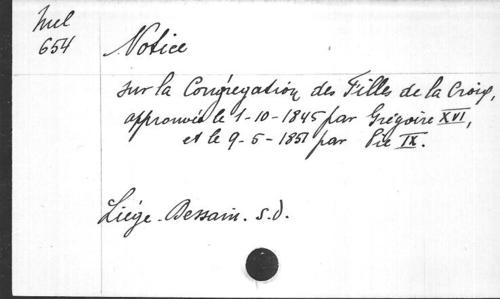 Mel
654
Notice
sur la Congrégation des Filles de la Croix,
approuvée le 1-10-1845 par Grégoire XVI,
et le 9-5-1851 par Pie IX.
Liége - Dessain. s.d.